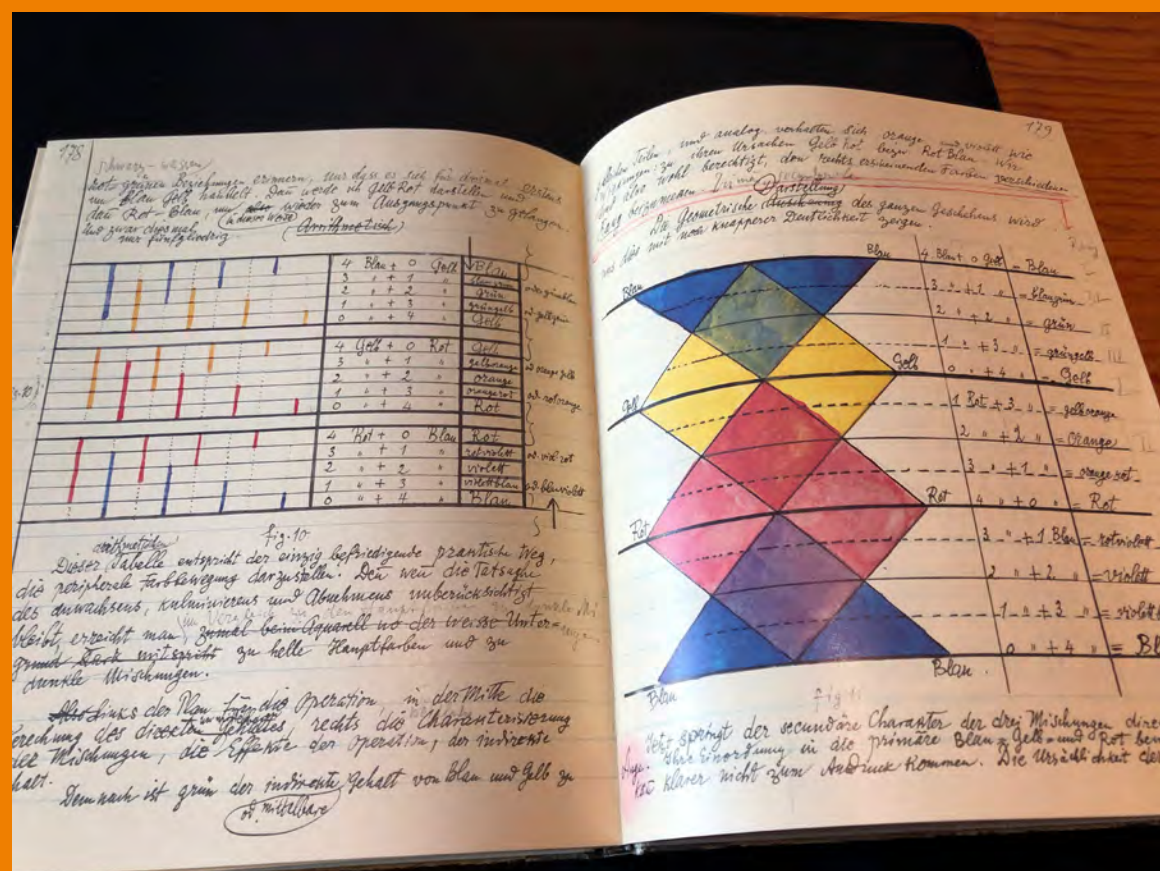 178
schwarz-weissen
rot grünen Beziehungen erinnern, nur dass es sich für dreimal erstens
um Blau Gelb handelt. Dan werde ich Gelb Rot darstellen und
dan Rot-Blau, um also wieder zum Ausgangspunkt zu gelangen.
und zwar diesmal (in dieser Weise)
nur fünfgliedrig. (Arithmetisch)
4 Blau + 0 Gelb Blau
3 " + 1 " blaugrün od. grünblau
2 " + 2 " grün
1 " + 3 " grüngelb od. gelbgrün
0 " + 4 " Gelb
4 Gelb + 0 Rot Gelb
3 " + 1 " gelborange od. orange gelb
2 " + 2 " orange
1 " + 3 " orangerot od. rotorange
0 " + 4 " Rot
4 Rot + 0 Blau Rot
3 " + 1 " rotviolett od. viol. rot
2 " + 2 " violett
1 " + 3 " violettblau od. blauviolett
0 " + 4 " Blau
fig. 10
arithmetischen
Dieser Tabelle entspricht der einzig befriedigende practische Weg,
die peripherale Farbbewegung darzustellen. Den wen die Tatsache
des anwachsens, kulminierens und Abnehmens unberücksichtigt
bleibt, erreicht man, zumal beim Aquarell wo der weisse Unter=
grund stark mitspricht zu helle Hauptfarben und zu
dunkle Mischungen.
Also Links der Plan für die Operation in der Mitte die
Berechnung des directen Gehaltes rechts die Charakterisierung
der Mischungen, die Effekte der Operation, der indirekte
halt.
Demnach ist grün der indirekte Gehalt von Blau und Gelb zu
od. mittelbare
179
gleichen Teilen, und analog verhalten sich orange und violett wie
zu ihren Ursachen Gelb Rot bezw. Rot Blau. Wir
sind also wohl berechtigt, den rechts erscheinenden Farben verschiedenen
Rang beizumessen.
Darstellung
Die Geometrische des ganzen Geschehens wird
uns dies mit noch knapperer Deutlichkeit zeigen.
Blau Blau 4 Blau + 0 Gelb = Blau
3 " + 1 " = blaugrün
2 " + 2 " = grün
1 " + 3 " = grüngelb
Gelb Gelb 0 " + 4 " = Gelb
1 Rot + 3 " = gelborange
2 " + 2 " = Orange
3 " + 1 " = orangerot
Rot Rot 4 " + 0 " = Rot
3 " + 1 Blau = rotviolett
2 " + 2 " = violett
1 " + 3 " = violettb
Blau Blau 0 " + 4 " = Bl
fig 11
Jetzt springt der secundäre Charakter der drei Mischungen direc
Auge. Ihre Einordnung in die primäre Blau = Gelb = und Rot
klarer nicht zum Ausdruck kommen. Die Ursächlichkeit der